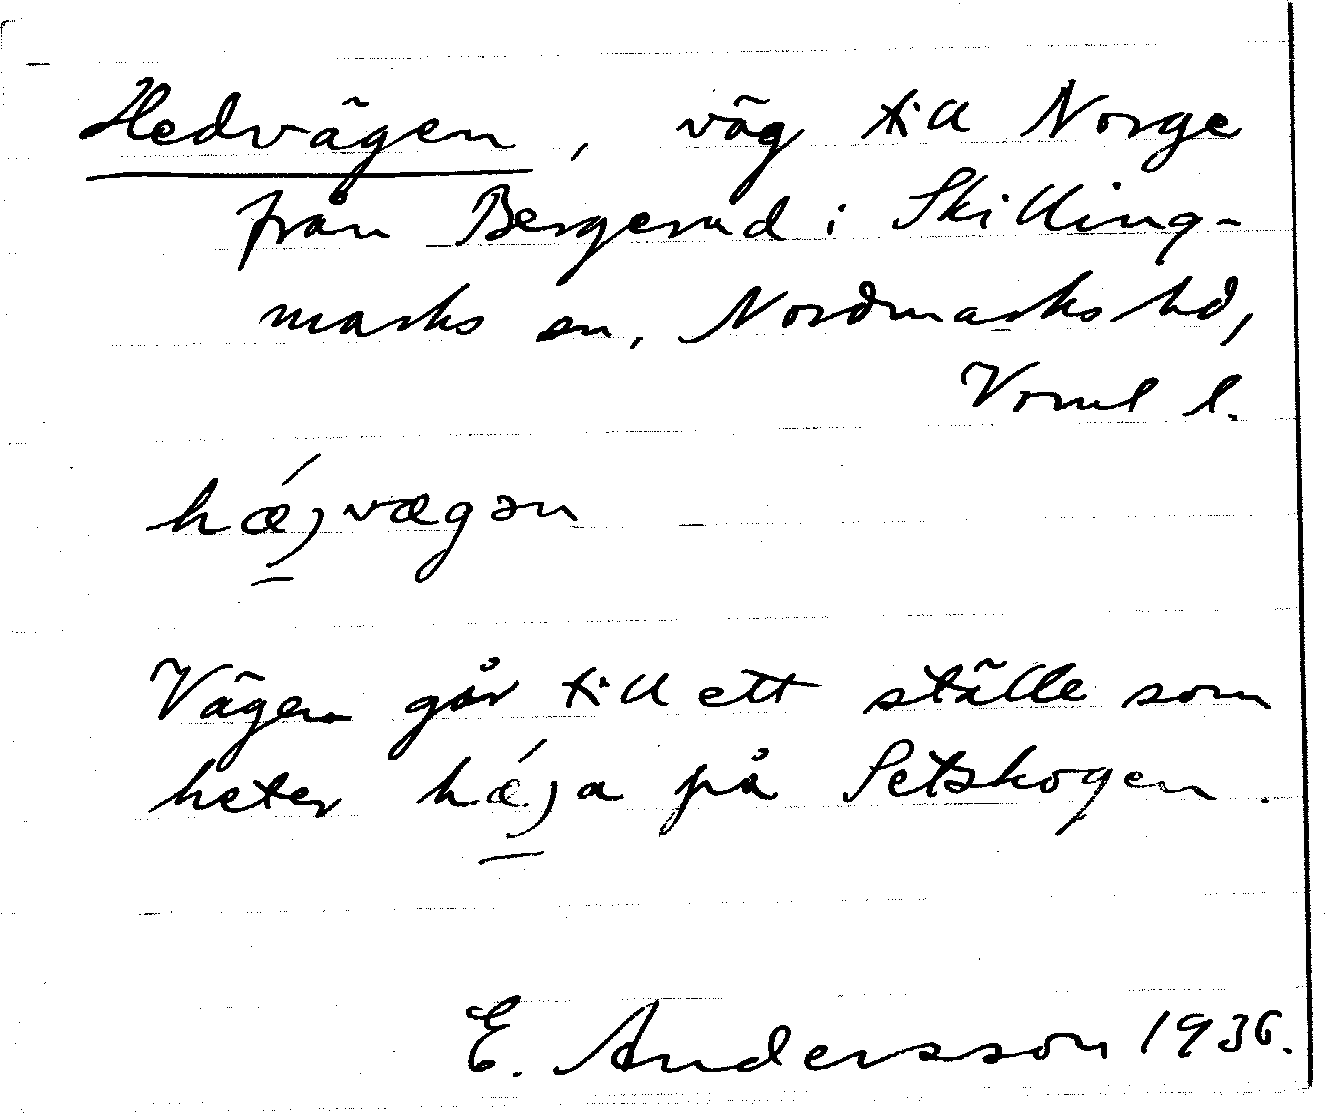 Hedvägen, väg till Norge
från Bergerud i Skilling-
marks sn, Nordmarks hd,
Vrml l.
hǽjvægən
Vägen går till ett ställe som
heter hǽja på Setskogen.
E. Andersson 1936.